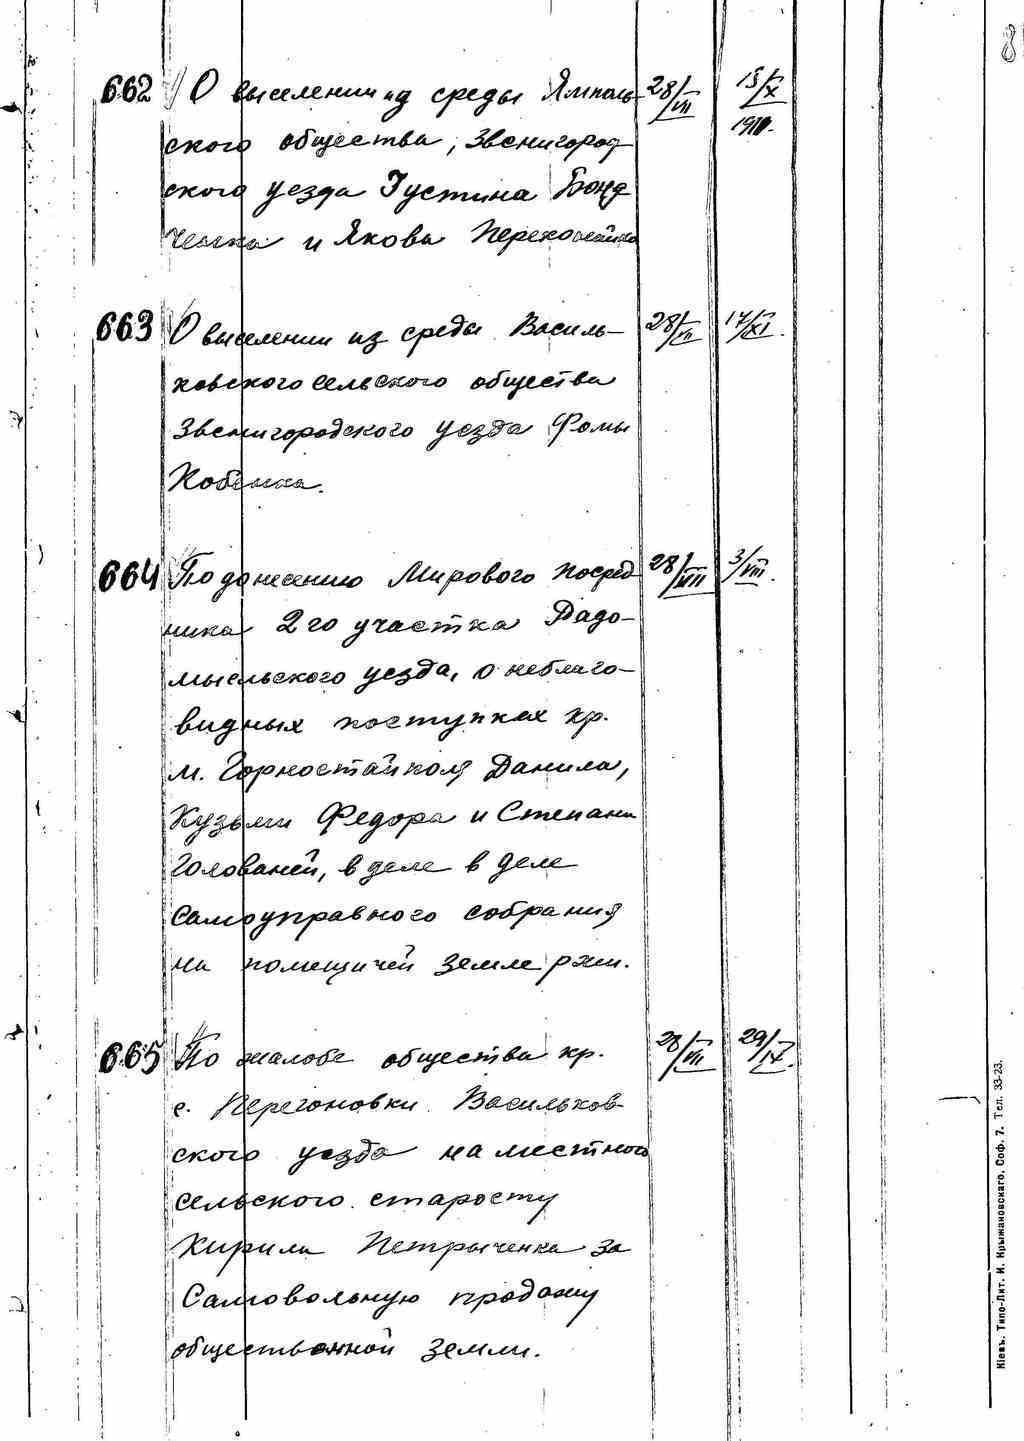 8
662 О выселении из среды Ямполь- 28/VII 15/X
ского общества, Звенигород- 1910.
ского уезда Густина Бонд
ченка и Якова
663 О выселении из среды Василь- 28/VII 17/XI.
ковского сельского общества
Звенигородского уезда Фомы
Кобенка.
664 По донесению Мирового посред- 28/VIII 3/VIII.
ника 2го участка Радо-
мысльского уезда, о неблаго-
видных поступках кр.
м. Горностайполя Данила,
Кузьми Федора и Степана
Голованей, в деле в деле
самоуправного собрания
на помещичей земле ржи.
665 По жалобе общества кр. 28/VIII 29/IX.
с. Перегоновки Васильков-
ского уезда на местного
сельского старосту
Кирила Петрыченка за
Самовольную продажу
общественной земли.
Кіевъ. Типо-Лит. И. Крыжановскаго. Соф. 7. Тел. 33-23.